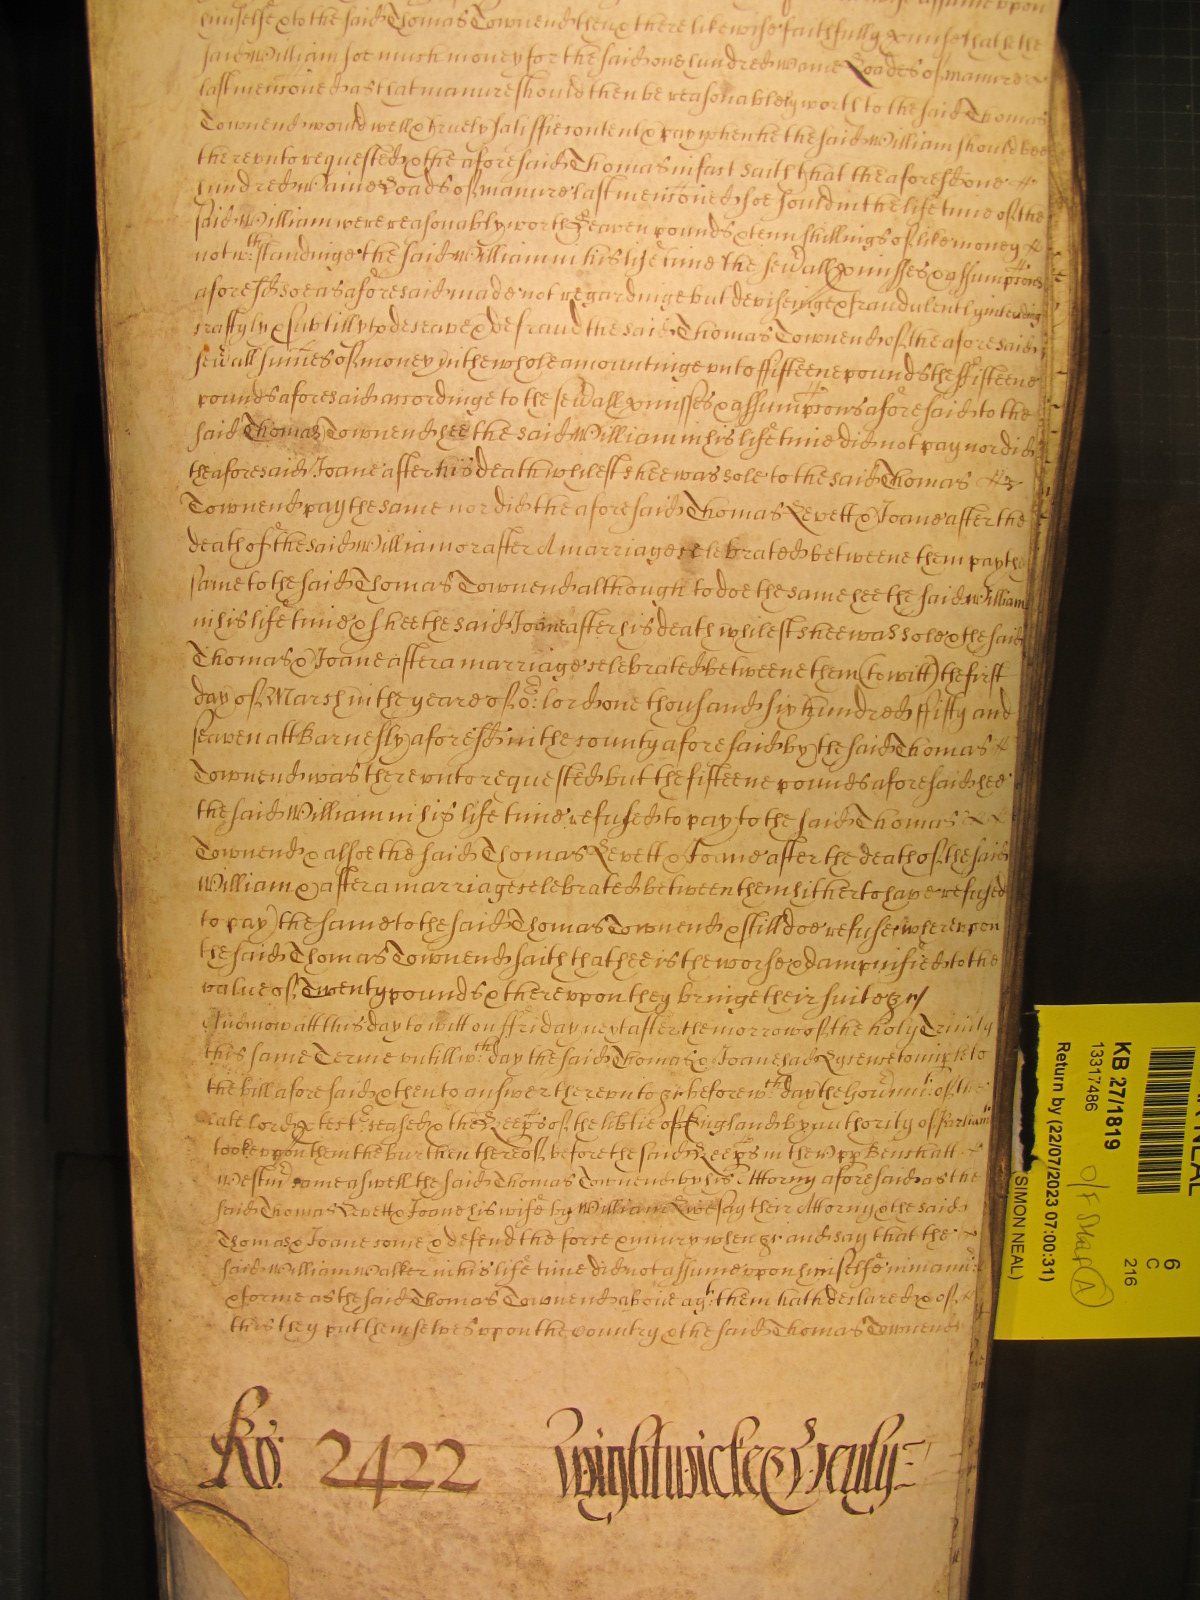 himselfe & to the said Thomas Townend then & there likewise faithfully promise that he the
said William soe much money for the said one hundred Waine Loades of manure
last mencioned as that manure should then be reasonablely worth to the said Thomas
Townend would well & truely satisfie content & pay when he the said William should bee
therevnto requested & the aforesaid Thomas in fact saith that the aforesd one
hundred Waine Loads of manure last mencioned soe sould in the life time of the
said William were reasonably worth Seaven pounds & tenn shillings of like money &
notwthstandinge the said William in his life time the sevall pmisses & assumpcons
aforesd soe as aforesaid made not regardinge but deviseinge & fraudulently intending
craftyly & subtilly to deceave & defraud the said Thomas Townend of the aforesaid
sevall sumes of money in the whole amountinge vnto ffifteene pounds the ffifteene
pounds aforesaid accordinge to the sevall pmisses & assumpcons aforesaid to the
said Thomas Townend hee the said William in his life time did not pay nor did
the aforesaid Joane after his death whilest shee was sole to the said Thomas
Townend pay the same nor did the aforesaid Thomas Levett & Joane after the
death of the said William or after a marriage celebrated betweene them pay the
same to the said Thomas Townend although to doe the same hee the said William
in his life time & shee the said Joane after his death whilest shee was sole & the said
Thomas & Joane after a marriage celebrated betweene them (to witt) the first
day of March in the yeare of or lord one thousand six hundred ffifty and
seaven att Barnesly aforesd in the county aforesaid by the said Thomas
Townend was therevnto requested but the fifteene pounds aforesaid hee
the said William in his life time refused to pay to the said Thomas
Townend & alsoe the said Thomas Levett & Joane after the death of the said
William & after a marriage celebrated between them hitherto have refused
to pay the same to the said Thomas Townend & still doe refuse wherevpon
the said Thomas Townend saith that hee is the worse & dampnified to the
value of Twenty pounds & therevpon they bringe their suite &c
And now att this day to witt on ffriday next after the morrow of the holy Trinity
this same Terme vntill wch day the said Thomas & Joane had Lycence to imple to
the bill aforesaid & then to answer therevnto &c before wch day the Govmt of the
late lord ptectr ceased & the Keeps of the libtie of England by authority of Parliamt
tooke vpon them the burthen thereof before the said Keeps in the Vpp Bench att
Westmr came aswell the said Thomas Townend by his Attorny aforesaid as the
said Thomas Levett & Joane his wife by William their Attorny & the said
Thomas & Joane come & defend the force & iniury when &c and say that the
said William Walker in his life time did not assume vpon himselfe in manner
& forme as the said Thomas Townend above agt them hath declared & of
this they put themselves vpon the Country & the said Thomas Townend
Ro: 2422 Wightwicke & Henly
KB 27/1819
13317486
Return by (22/07/2023 07:00:31)
(SIMON NEAL)
6
C
216